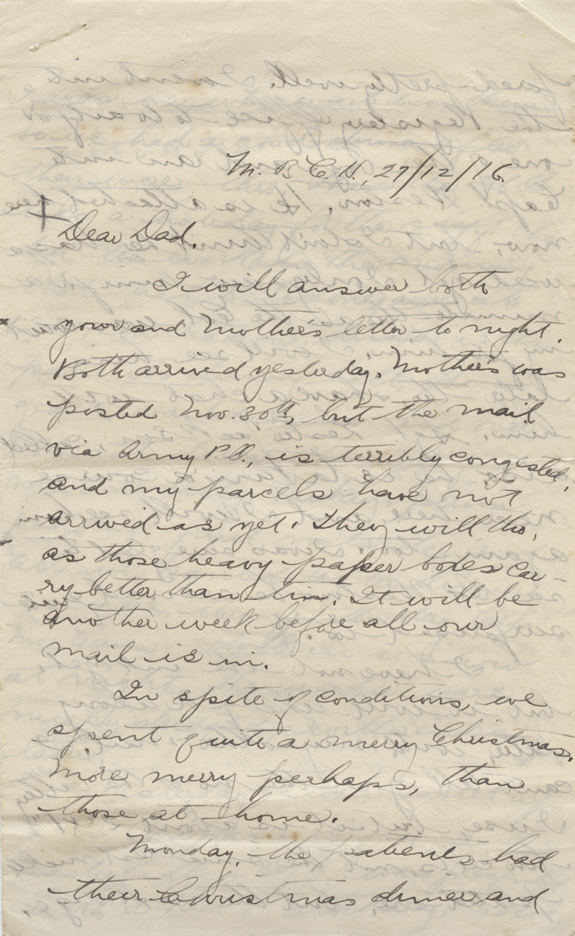 M. B. C. H., 27/12/16
Dear Dad.
I will answer both
your and Mother's letter to night.
Both arrived yesterday. Mother's was
posted Nov. 30th, but the mail
via Army P.O., is terribly congested,
and my parcels have not
arrived as yet. They will tho,
as those heavy paper boxes car-
ry better than tin. It will be
another week before all our
mail is in.
In spite of conditions, we
spent quite a merry Christmas.
More merry perhaps, than
those at home.
Monday, the patients had
their Christmas dinner and